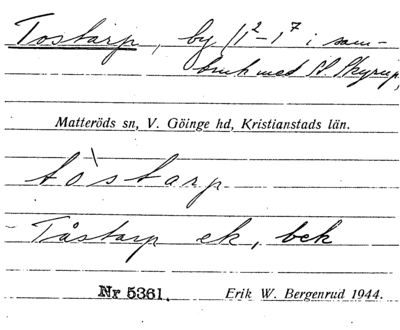 Tostarp, by 1/1²-1⁷ i sam-
bruk med St. Skyrup,
Matteröds sn, V. Göinge hd, Kristianstads län.
tòstarp
Tåstarp ek, bek
Nr 5361. Erik W. Bergenrud 1944.